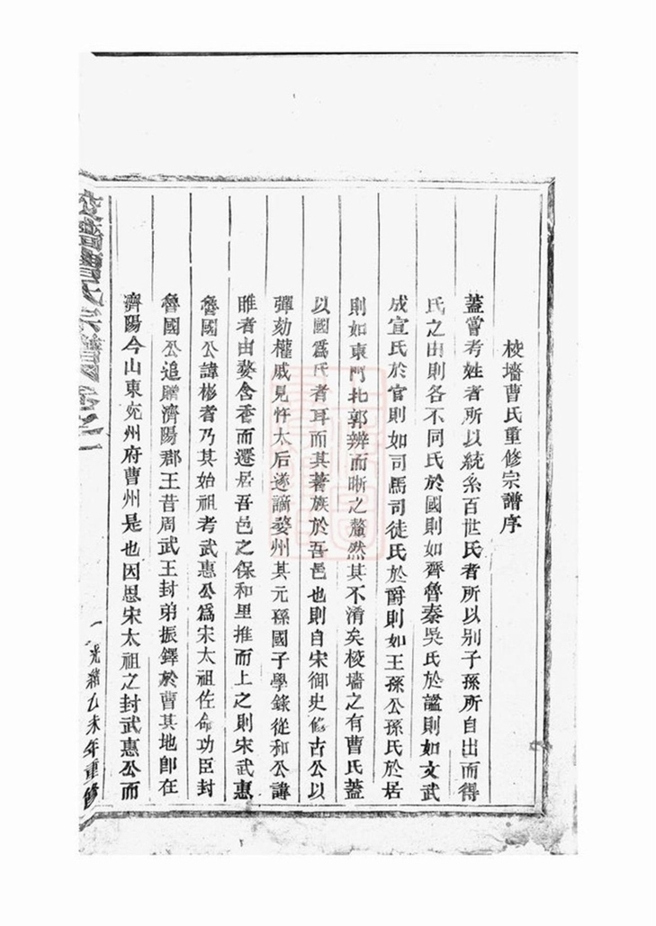 棱墻曹氏重修宗譜序
蓋嘗考姓者所以統系百世氏者所以别子孫所自出而得
氏之由則各不同氏於國則如齊魯秦吳氏於謚則如文武
成宣氏於官則如司馬司徒氏於爵則如王孫公孫氏於居
則如東門北郭辨而晰之釐然其不淆矣棱墻之有曹氏蓋
以國爲氏者耳而其著族於吾邑也則自宋御史脩古公以
彈劾權戚見忤太后遂謫婺州其元孫國子學錄從和公諱
睢者由婺含香而遷居吾邑之保和里推而上之則宋武惠
魯國公諱彬者乃其始祖考武惠公爲宋太祖佐命功臣封
魯國公追贈濟陽郡王昔周武王封弟振鐸於曹其地卽在
濟陽今山東兖州府曹州是也因思宋太祖之封武惠公而
棱墻曹氏宗譜卷之一
一
光緒乙未年重修